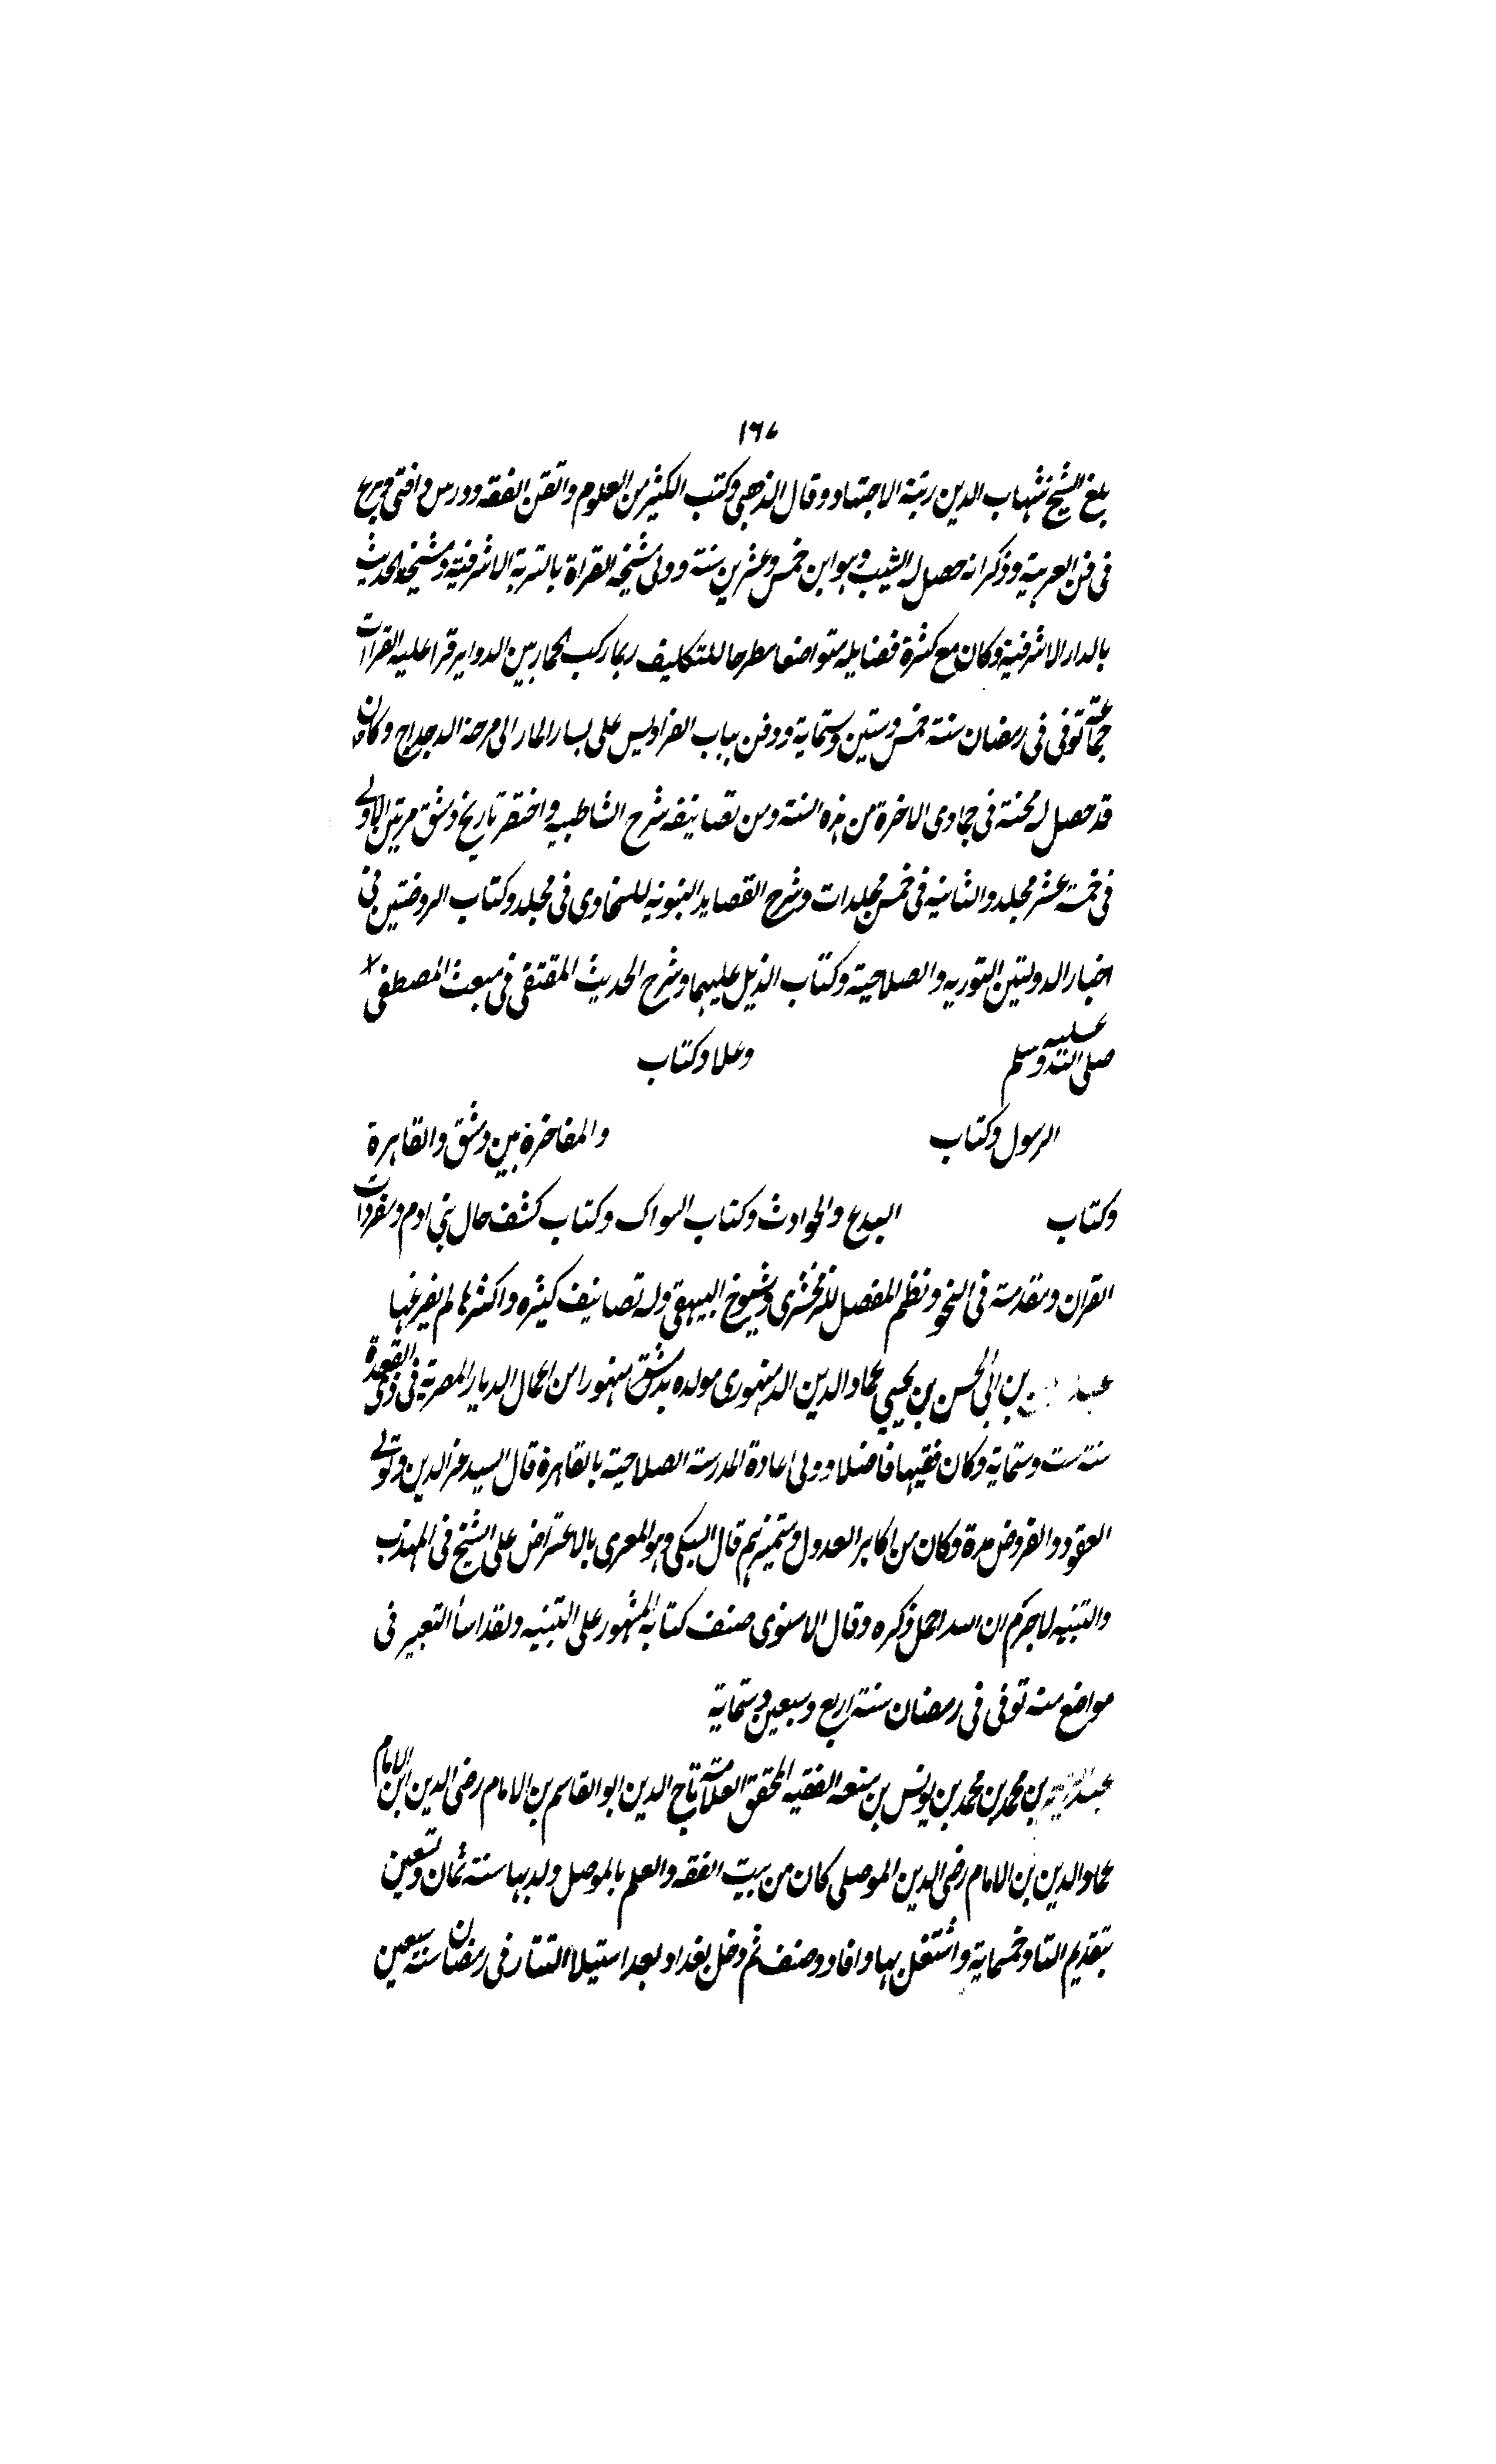 ١٦٧
بلغ الشيخ شهاب الدين رتبة الاجتهاد وقال الذهبي وكتب الكثير من العلوم واتقن الفقه ودرس وافتى وبرع
فى فن العربية وذكر انه حصل له الشيب وهو ابن خمس وعشرين سنة وولى مشيخة القراة بالتربة الاشرفية ومشيخة الحديث
بالدار الاشرفية وكان مع كثرة فضايله متواضعا مطرحا للتكليف ربما ركب الحمار بين الدواير قرا عليه القراات
جماعة توفى فى رمضان سنة خمس وستين وستماية ودفن بباب الفراديس على يسار المار الى مرجة الدحداح وكان
قد حصل له محنة فى جمادى الاخرة من هذه السنة ومن تصانيفه شرح الشاطبيه واختصر تاريخ دمشق مرتين الاولى
فى خمسة عشر مجلد والثانية فى خمس مجلدات وشرح القصايد النبوية للسخاوى فى مجلد وكتاب الروضتين فى
اخبار الدولتين النوريه والصلاحية وكتاب الذيل عليهما وشرح الحديث المقتفى فى مبعث المصطفى
صلى الله عليه وسلم وعلا وكتاب
الرسول وكتاب والمفاخرة بين دمشق والقاهرة
وكتاب البدع والحوادث وكتاب السواك وكتاب كشف حال بنى ادم ومفردات
القران ومقدمة فى النحو ونظم المفصل للزمخشرى وشيوخ البيهقى وله تصانيف كثيره واكثرها لم يفرغها
بن ابى الحسن بن يحيي عماد الدين الدمنهورى مولده بدمشق منهورا من اعمال الديار المصرية فى ذى القعدة
سنة ست وستماية وكان فقيها فاضلا وولى اعادة المدرسة الصلاحية بالقاهرة قال السيد عز الدين وتولى
العقود والفروض مدة وكان من اكابر العدول ومتميزيهم قال السبكى وهو المعرى بالاعتراض على الشيخ فى المهذب
والتنبيه لاجرم ان الله اخمل ذكره وقال الاسنوى صنف كتابه المشهور على التنبيه ولقد اسأ التعبير فى
مواضع منه توفى فى رمضان سنة اربع وسبعين وستماية
عبد الرحيم بن محمد بن محمد بن يونس بن منعه الفقيه المحقق العلامة تاج الدين ابو القاسم بن الامام رضى الدين ابن الامام
عماد الدين بن الامام رضى الدين الموصلى كان من بيت الفقه والعلم بالموصل ولد بها سنة ثمان وتسعين
بتقديم التا وخمسماية واشتغل بها وافاد وصنف ثم دخل بغداد بعد استيلاأ التتار فى رمضان سنة سبعين